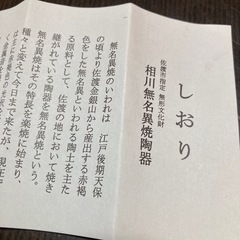 しおり
佐渡市指定 無形文化財
相川無名異焼陶器
無名異焼のいわれは 江戸後期天保
の頃より佐渡金銀山から産出する赤褐
色をした無名異といわれる陶土を主た
る原料として、佐渡の地において焼き
継がれている陶器を無名異焼という。
無名異焼はその特長を楽焼に始まり、
種々と変えて今日まで来たが、現在戸